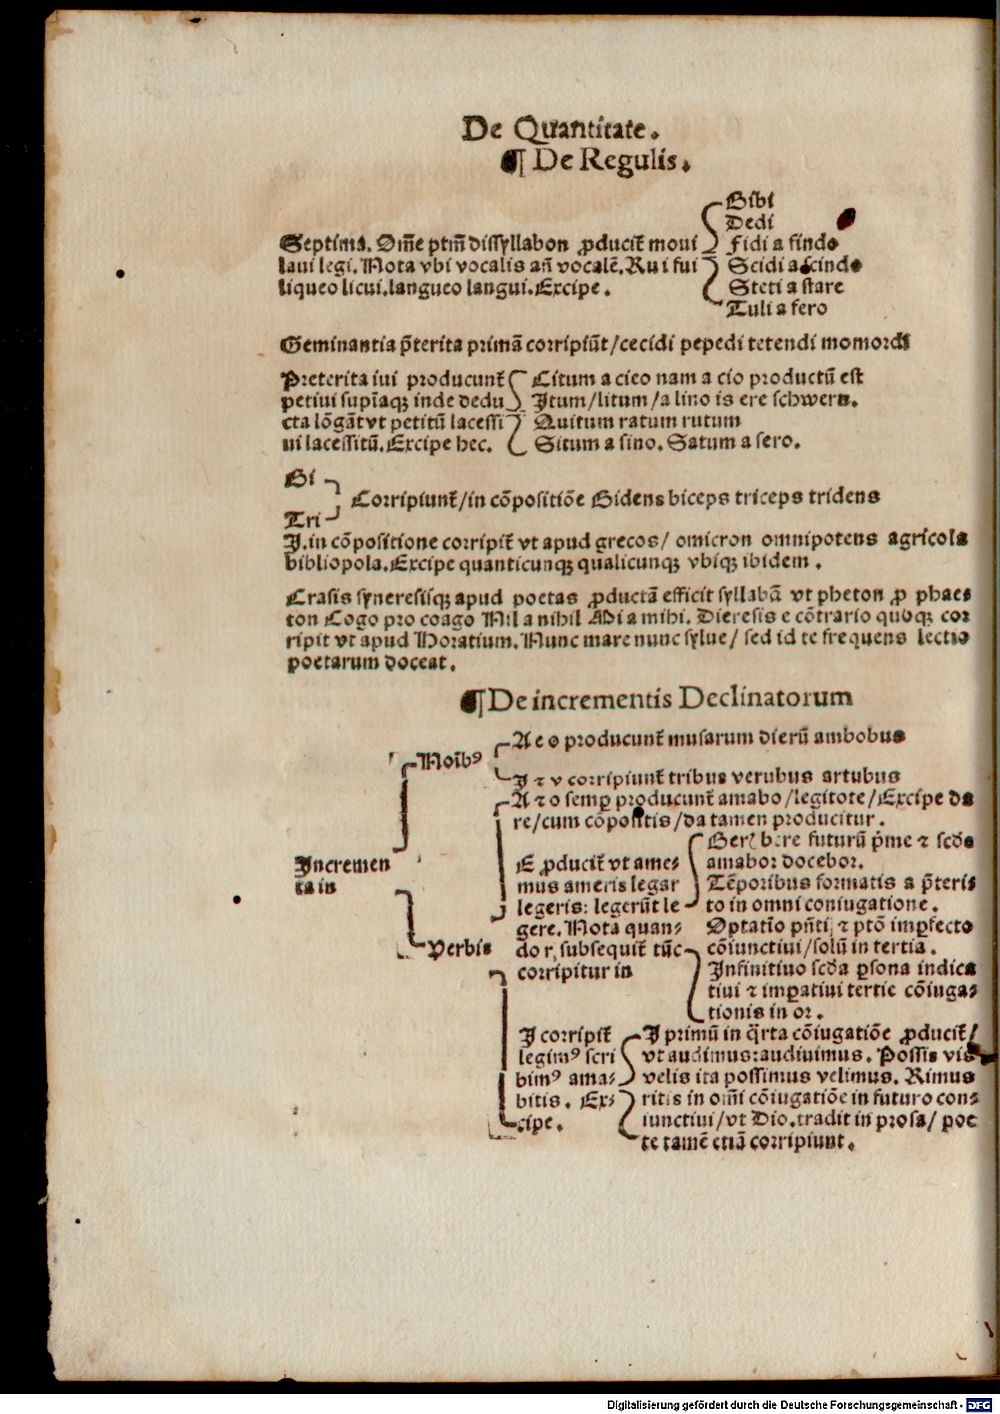 De Quantitate.
¶ De Regulis.
Septima. Om̄e ptm̄ dissyllabon ꝓducit̄ moui
laui legi. Nota vbi vocalis an̄ vocalē. Rui fui
liqueo licui. langueo langui. Excipe.
Bibi
Dedi
Fidi a findo
Scidi a scindo
Steti a stare
Tuli a fero
Geminantia p̄terita primā corripiūt/cecidi pepedi tetendi momordi
Preterita iui producunt̄
petiui supīaqꝫ inde dedu
cta lōgāt vt petitū lacessi
ui lacessitū. Excipe hec.
Citum a cieo nam a cio productū est
Itum/litum/a lino is ere schwern.
Quitum ratum rutum
Situm a sino. Satum a sero.
Bi
Tri
Corripiunt̄/in cōpositiōe Bidens biceps triceps tridens
I. in cōpositione corripit̄ vt apud grecos/ omicron omnipotens agricola
bibliopola. Excipe quanticunqꝫ qualicunqꝫ vbiqꝫ ibidem.
Crasis syneresisqꝫ apud poetas ꝓductā efficit syllabā vt pheton ꝓ phae-
ton Cogo pro coago Nil a nihil Mi a mihi. Dieresis e cōtrario quoqꝫ cor
ripit vt apud Horatium. Nunc mare nunc sylue/ sed id te frequens lectio
poetarum doceat.
¶ De incrementis Declinatorum
Incremen
ta in
Noībꝰ
A e o producunt̄ musarum dierū ambobus
I ⁊ v corripiunt̄ tribus verubus artubus
Verbis
A ⁊ o semꝑ producunt̄ amabo/legitote/Excipe da
re/cum cōpositis/da tamen producitur.
E ꝓducit̄ vt ame-
mus ameris legar
legeris: legerūt le
gere. Nota quan-
do r, subsequit̄ tūc
corripitur in
bere futurū p̄me ⁊ scd̄e
amabor docebor.
Tēporibus formatis a p̄teri-
to in omni coniugatione.
Optatīo pn̄ti ⁊ ptō imꝑfecto
cōiunctiui/solū in tertia.
Infinitiuo scd̄a ꝑsona indica
tiui ⁊ imꝑatiui tertie cōiuga-
tionis in or.
I corripit̄
legimꝰ scri
bimꝰ ama-
bitis. Ex-
cipe.
I primū in q̄rta cōiugatiōe ꝓducit̄/
vt audimus: audiuimus. Possis vis
velis ita possimus velimus. Rimus
ritis in omī cōiugatiōe in futuro con-
iunctiui/vt Dio. tradit in prosa/ poe
te tamē etiā corripiunt.
Digitalisierung gefördert durch die Deutsche Forschungsgemeinschaft - DFG